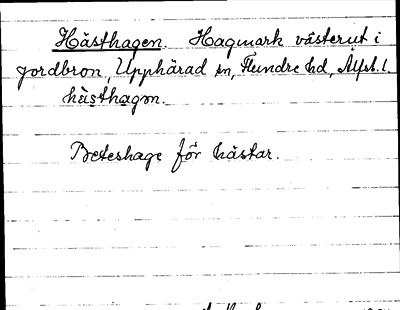 Hästhagen. Hagmark västerut i
jordbron, Upphärad sn, Flundre hd, Älvsb. l.
hàsthagσn.
Beteshage för hästar.